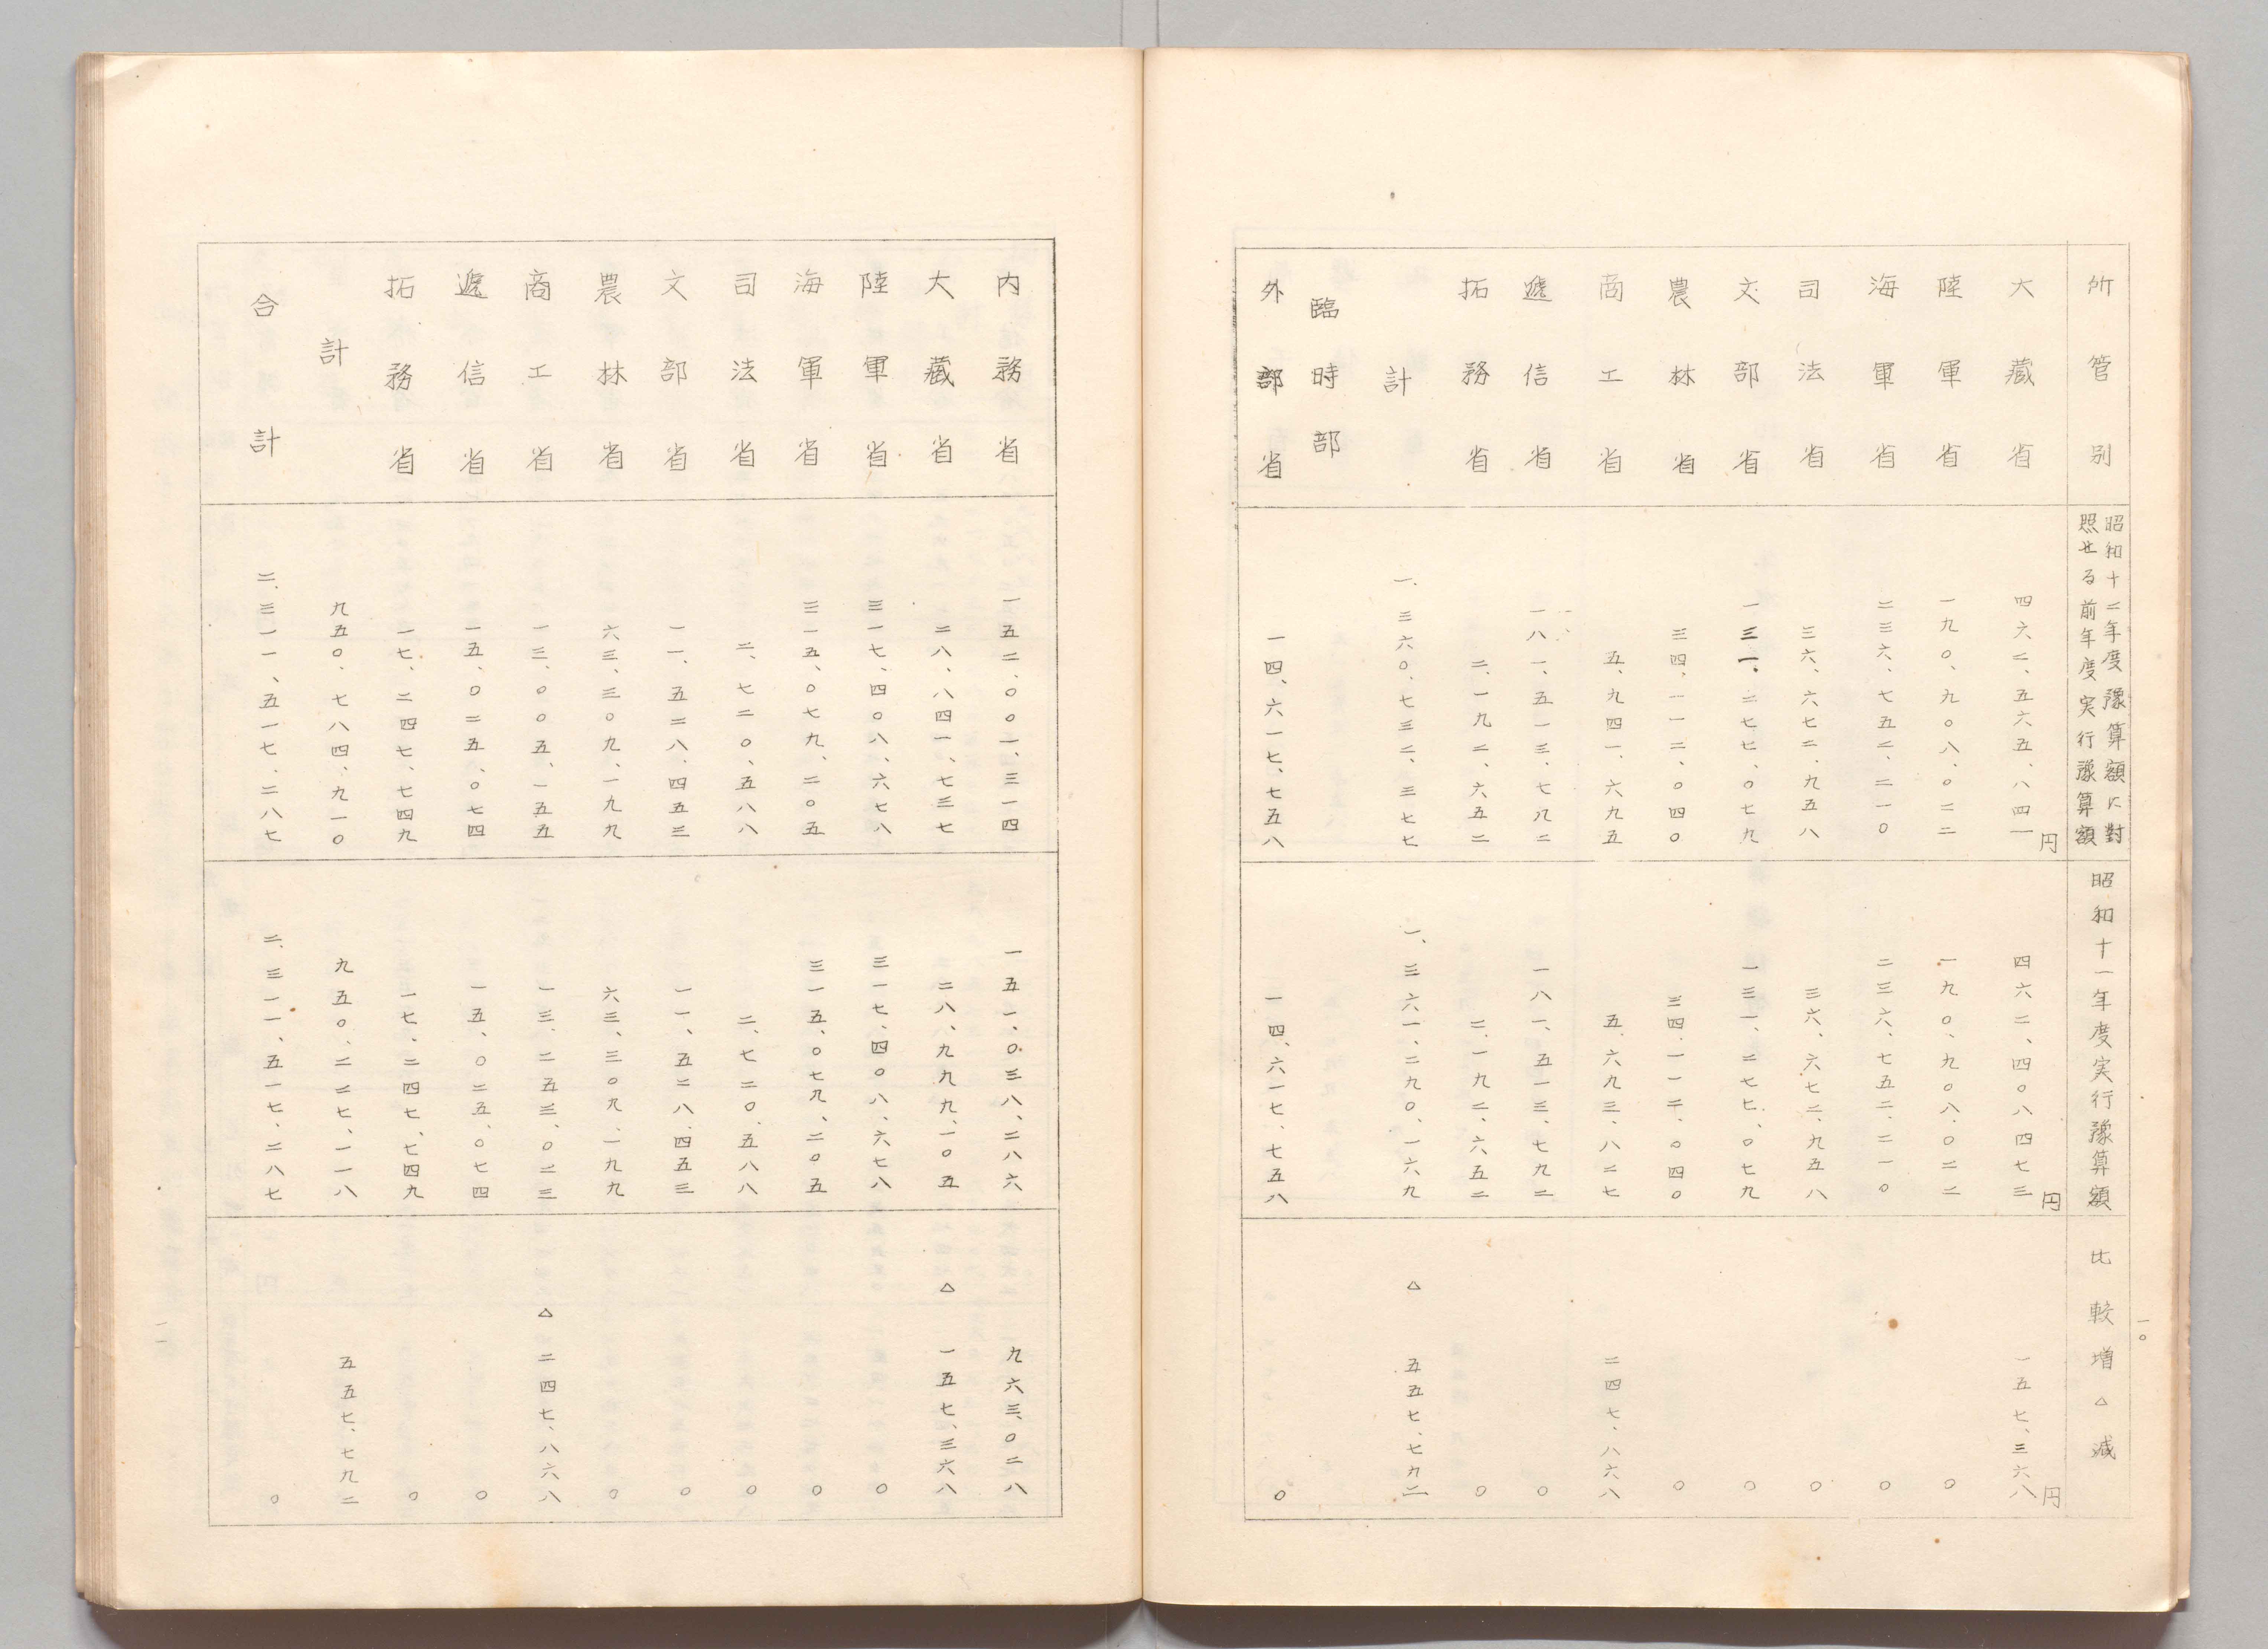 一〇
所管別 昭和十二年度豫算額に對照せる前年度実行豫算額 昭和十一年度実行豫算額 比較増△減
大藏省 四六二、五六五、八四一円 四六二、四〇八四七三円 一五七、三六八円
陸軍省 一九〇、九〇八、〇二二 一九〇、九〇八、〇二二 〇
海軍省 二三六、七五二、二一〇 二三六、七五二、二一〇 〇
司法省 三六、六七二、九五八 三六、六七二、九五八 〇
文部省 一三一、二七七、〇七九 一三一、二七七、〇七九 〇
農林省 三四、一一二、〇四〇 三四、一一二、〇四〇 〇
商工省 五、九四一、六九五 五、六九三、八二七 二四七、八六八
遞信省 一八一、五一三、七九二 一八一、五一三、七九二 〇
拓務省 二、一九二、六五二 二、一九二、六五二 〇
計 一、三六〇、七三二、三七七 一、三六一、二九〇、一六九 △五五七、七九二
臨時部
外部省 一四、六一七、七五八 一四、六一七、七五八 〇
内務省 一五二、〇〇一、三一四 一五一、〇三八、二八六 九六三、〇二八
大藏省 二八、八四一、七三七 二八、九九九、一〇五 △一五七、三六八
陸軍省 三一七、四〇八、六七八 三一七、四〇八、六七八 〇
海軍省 三一五、〇七九、二〇五 三一五、〇七九、二〇五 〇
司法省 二、七二〇、五八八 二、七二〇、五八八 〇
文部省 一一、五二八、四五三 一一、五二八、四五三 〇
農林省 六三、三〇九、一九九 六三、三〇九、一九九 〇
商工省 一三、〇〇五、一五五 一三、二五三、〇二三 △二四七、八六八
遞信省 一五、〇二五、〇七四 一五、〇二五、〇七四 〇
拓務省 一七、二四七、七四九 一七、二四七、七四九 〇
計 九五〇、七八四、九一〇 九五〇、二二七、一一八 五五七、七九二
合計 二、三一一、五一七、二八七 二、三一一、五一七、二八七 〇
一一